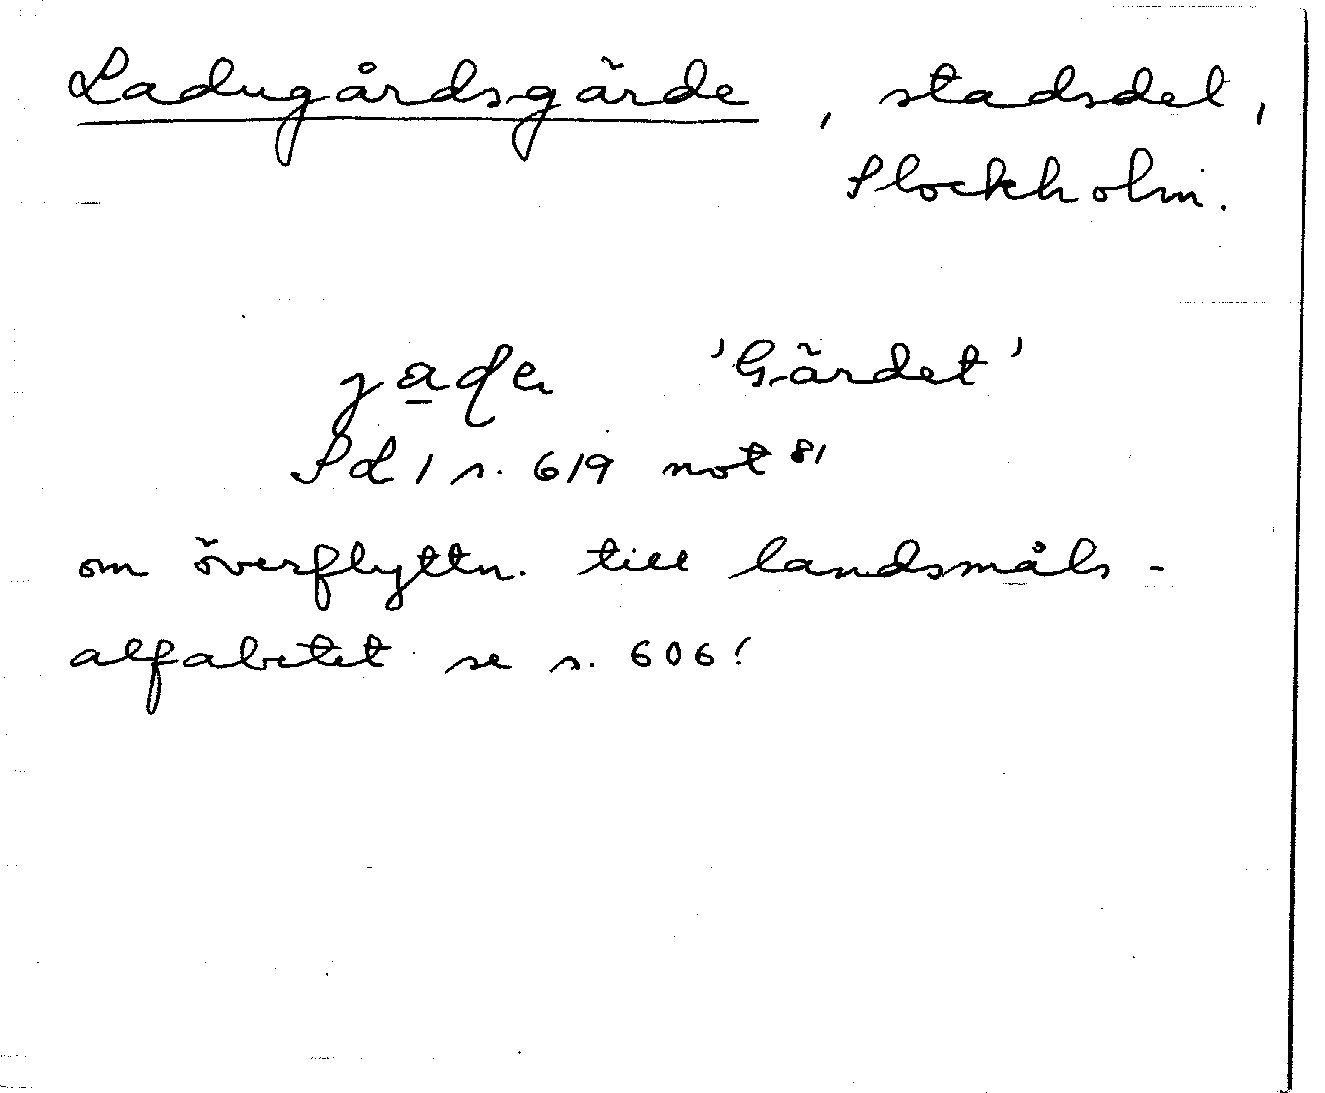 Ladugårdsgärde, stadsdel,
Stockholm.
'Gärdet'
Sd 1 s. 619 not 81
om överflyttn. till landsmåls-
alfabetet se s. 606!